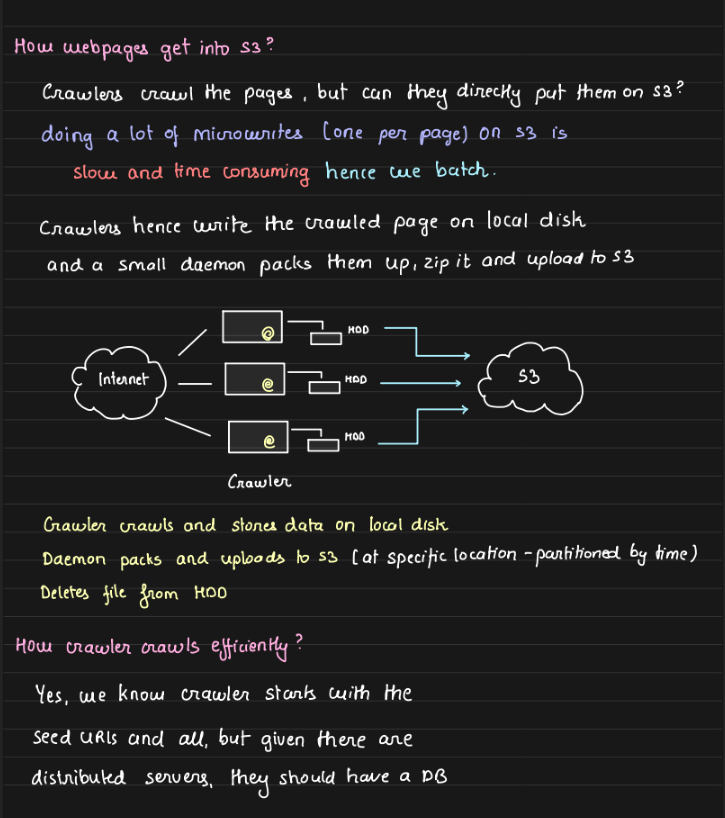 How webpages get into S3?
Crawlers crawl the pages, but can they directly put them on S3?
doing a lot of microwrites (one per page) on S3 is
slow and time consuming hence we batch.
Crawlers hence write the crawled page on local disk
and a small daemon packs them up, zip it and upload to S3
HDD
Internet
HDD
S3
HDD
Crawler
Crawler crawls and stores data on local disk
Daemon packs and uploads to S3 (at specific location - partitioned by time)
Deletes file from HDD
How crawler crawls efficiently?
Yes, we know crawler starts with the
seed URIs and all, but given there are
distributed servers, they should have a DB